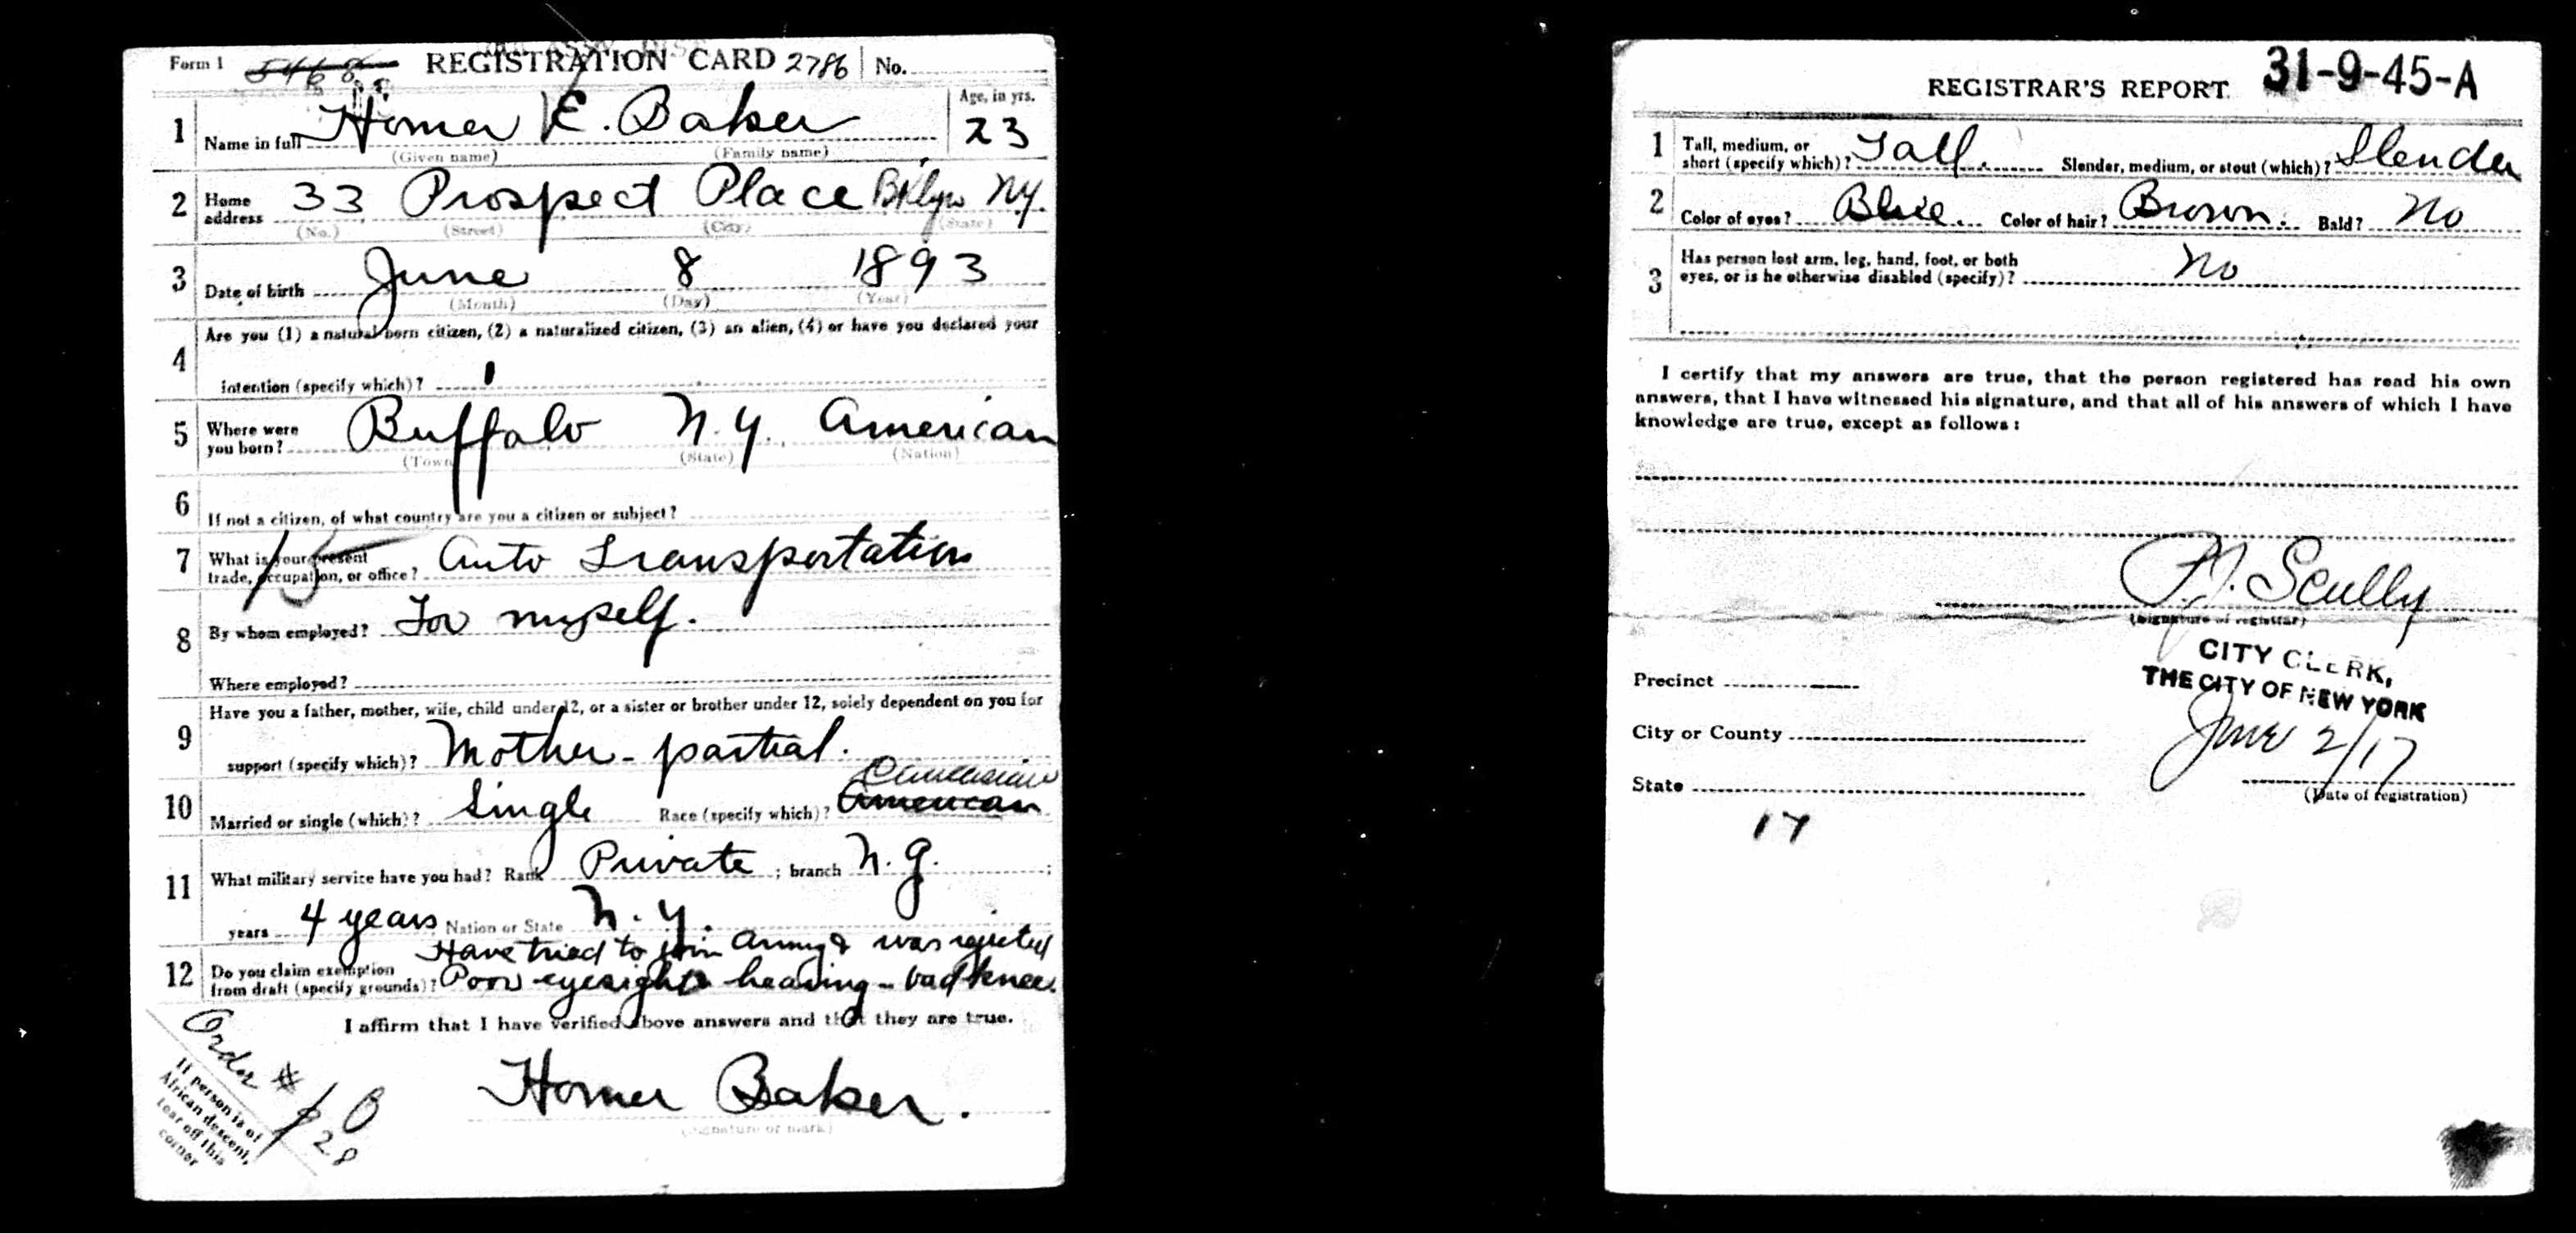 Form 1 5468 REGISTRATION CARD 2786 No.
1 Name in full Homer E. Baker Age, in yrs. 23
(Given name) (Family name)
2 Home address 33 Prospect Place Bklyn N.Y.
(No.) (Street) (City) (State)
3 Date of birth June 8 1893
(Month) (Day) (Year)
4 Are you (1) a natural born citizen, (2) a naturalized citizen, (3) an alien, (4) or have you declared your
intention (specify which)? 1
5 Where were you born? Buffalo N.Y. American
(Town) (State) (Nation)
6 If not a citizen, of what country are you a citizen or subject?
7 What is your present trade, occupation, or office? 15 Auto Transportation
8 By whom employed? For myself.
Where employed?
9 Have you a father, mother, wife, child under 12, or a sister or brother under 12, solely dependent on you for
support (specify which)? Mother - partial.
Caucasian
10 Married or single (which)? Single Race (specify which)? American
11 What military service have you had? Rank Private ; branch N.G. ;
years 4 years Nation or State N.Y.
Have tried to join Army & was rejected
12 Do you claim exemption from draft (specify grounds)? Poor eyesight & hearing - bad knee.
I affirm that I have verified above answers and that they are true.
Homer Baker.
(Signature or mark)
Order #
If person is of
African descent,
tear off this
corner
28
REGISTRAR'S REPORT 31-9-45-A
1 Tall, medium, or short (specify which)? Tall. Slender, medium, or stout (which)? Slender
2 Color of eyes? Blue. Color of hair? Brown. Bald? No
3 Has person lost arm, leg, hand, foot, or both
eyes, or is he otherwise disabled (specify)? No
I certify that my answers are true, that the person registered has read his own
answers, that I have witnessed his signature, and that all of his answers of which I have
knowledge are true, except as follows:
P.J. Scully
(Signature of registrar)
CITY CLERK,
THE CITY OF NEW YORK
Precinct
City or County
June 2/17
State
(Date of registration)
17